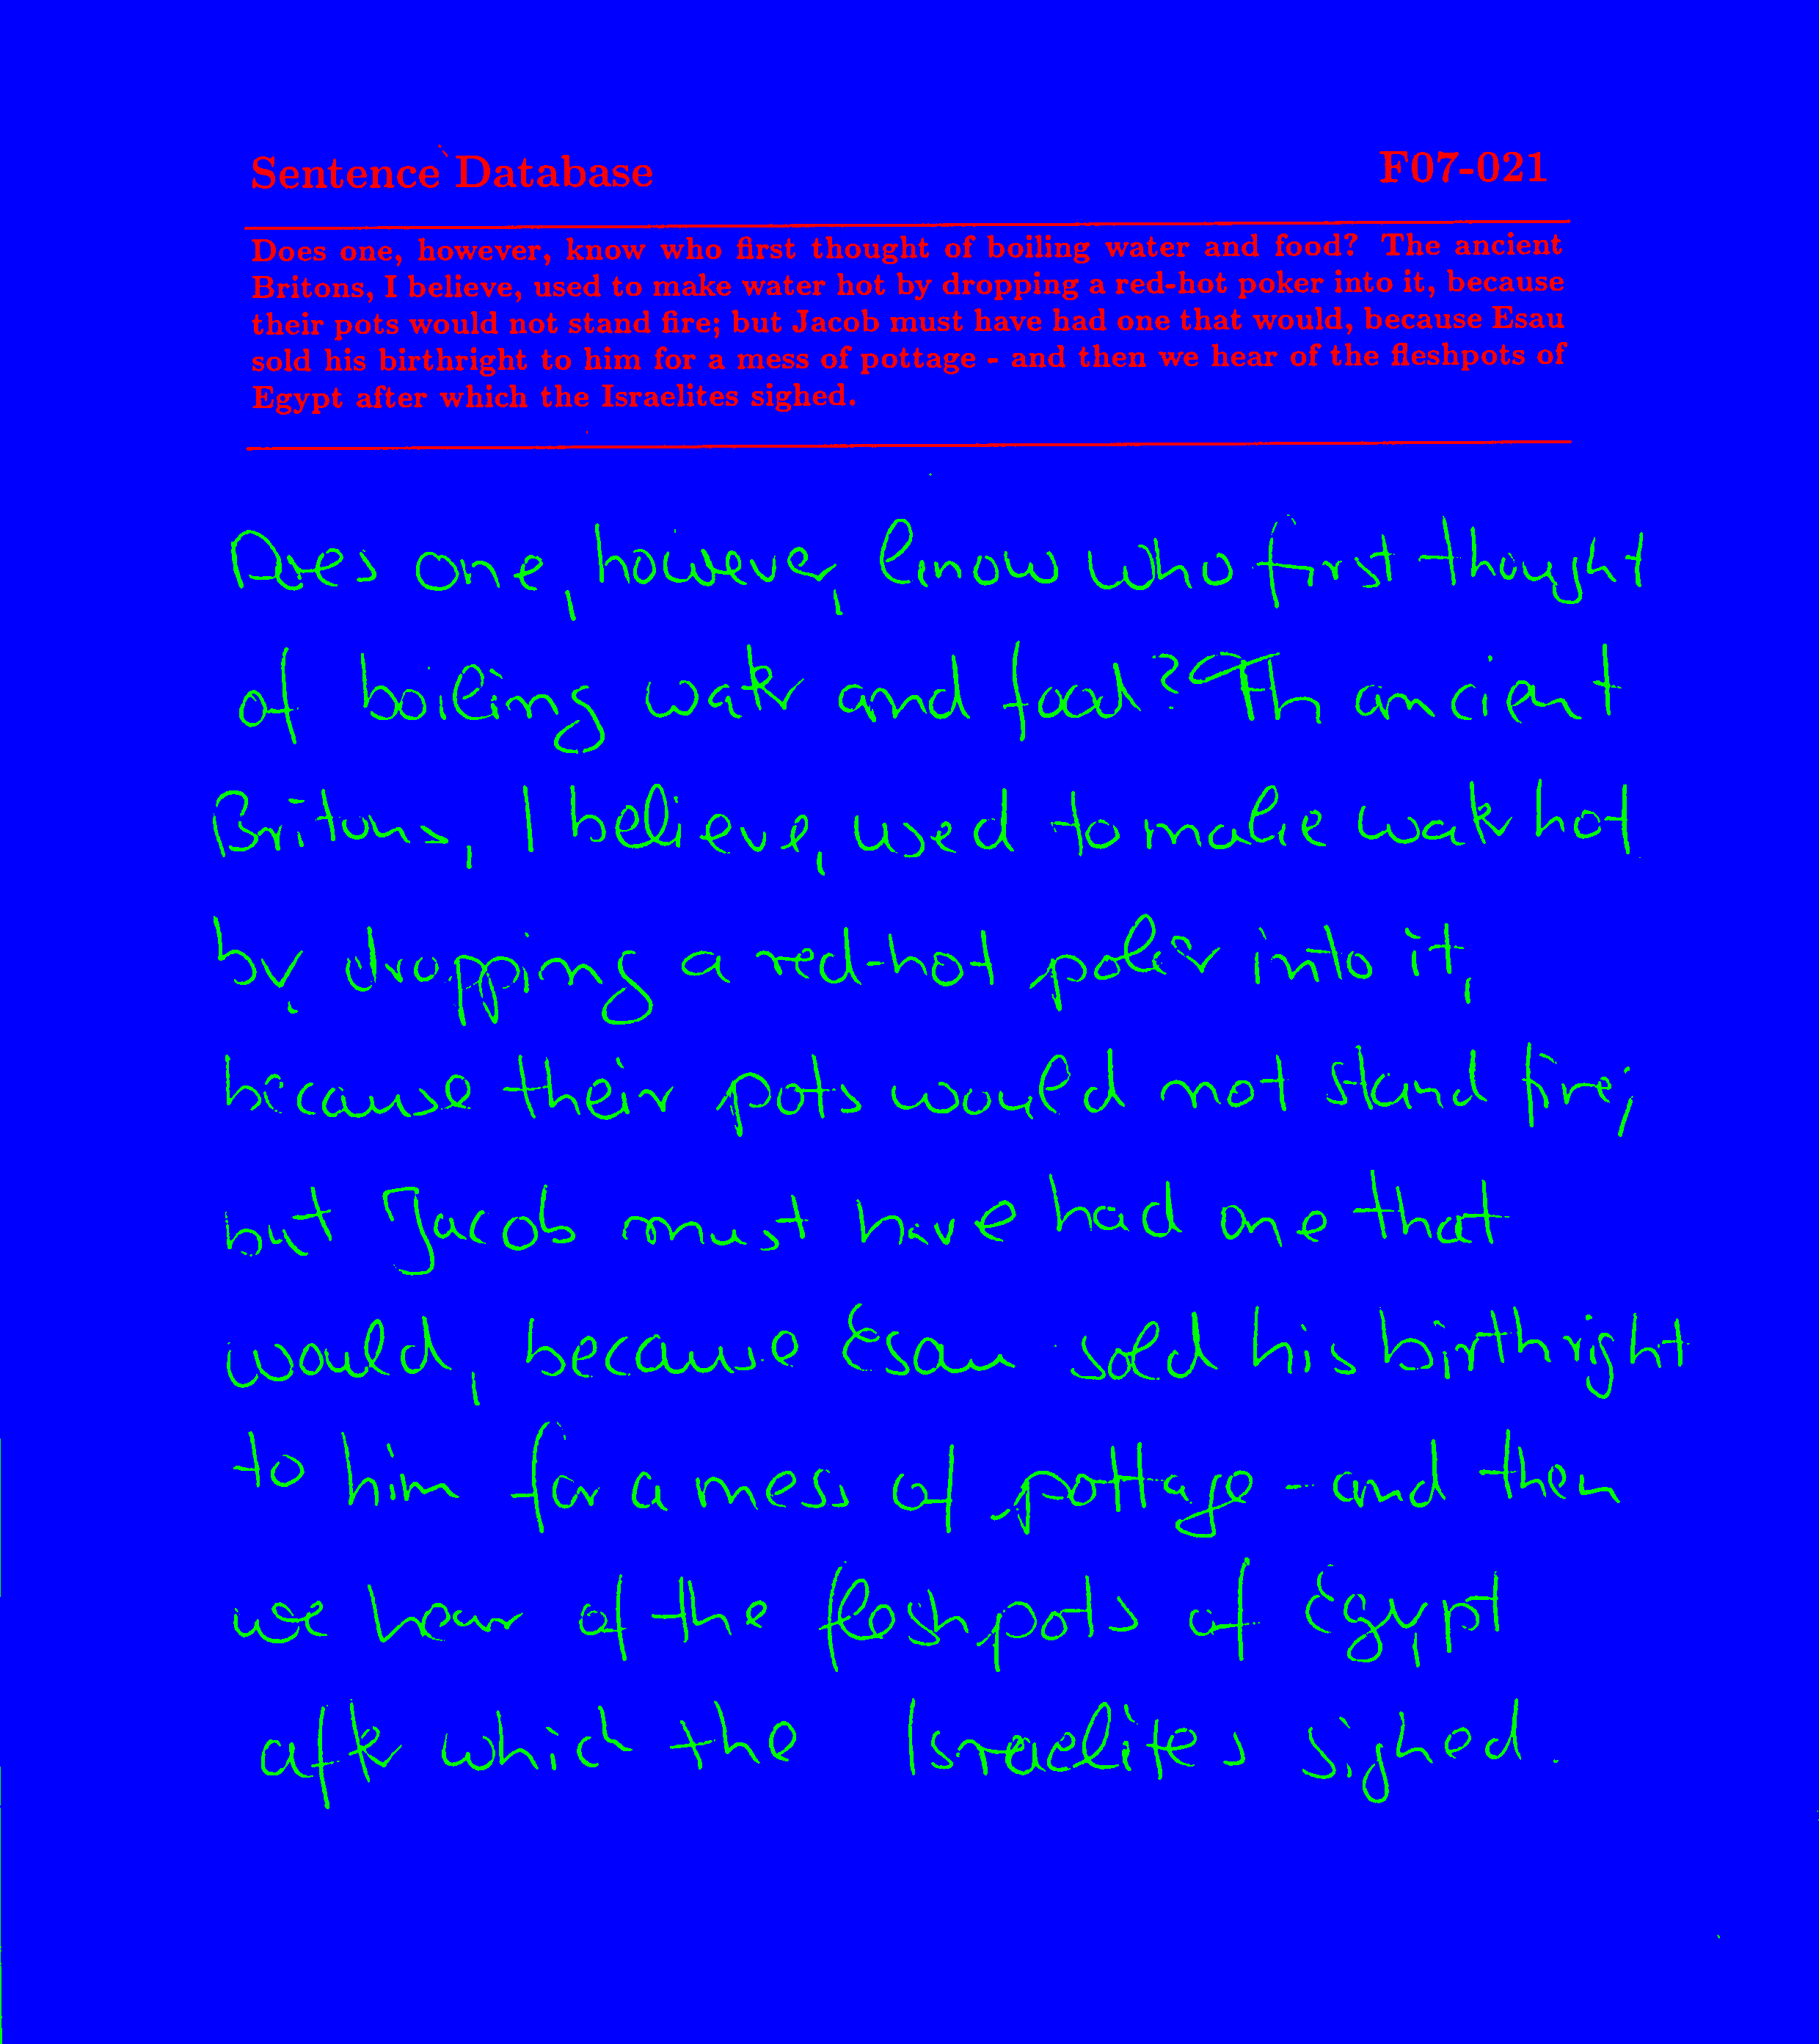 Sentence Database F07-021
Does one, however, know who first thought of boiling water and food? The ancient
Britons, I believe, used to make water hot by dropping a red-hot poker into it, because
their pots would not stand fire; but Jacob must have had one that would, because Esau
sold his birthright to him for a mess of pottage - and then we hear of the fleshpots of
Egypt after which the Israelites sighed.
Does one, however, know who first thought
of boiling water and food? Th ancient
Britons, I believe, used to make water hot
by dropping a red-hot poker into it,
because their pots would not stand fire;
but Jacob must have had one that
would, because Esau sold his birthright
to him for a mess of pottage - and then
we hear of the fleshpots of Egypt
after which the Israelites sighed.